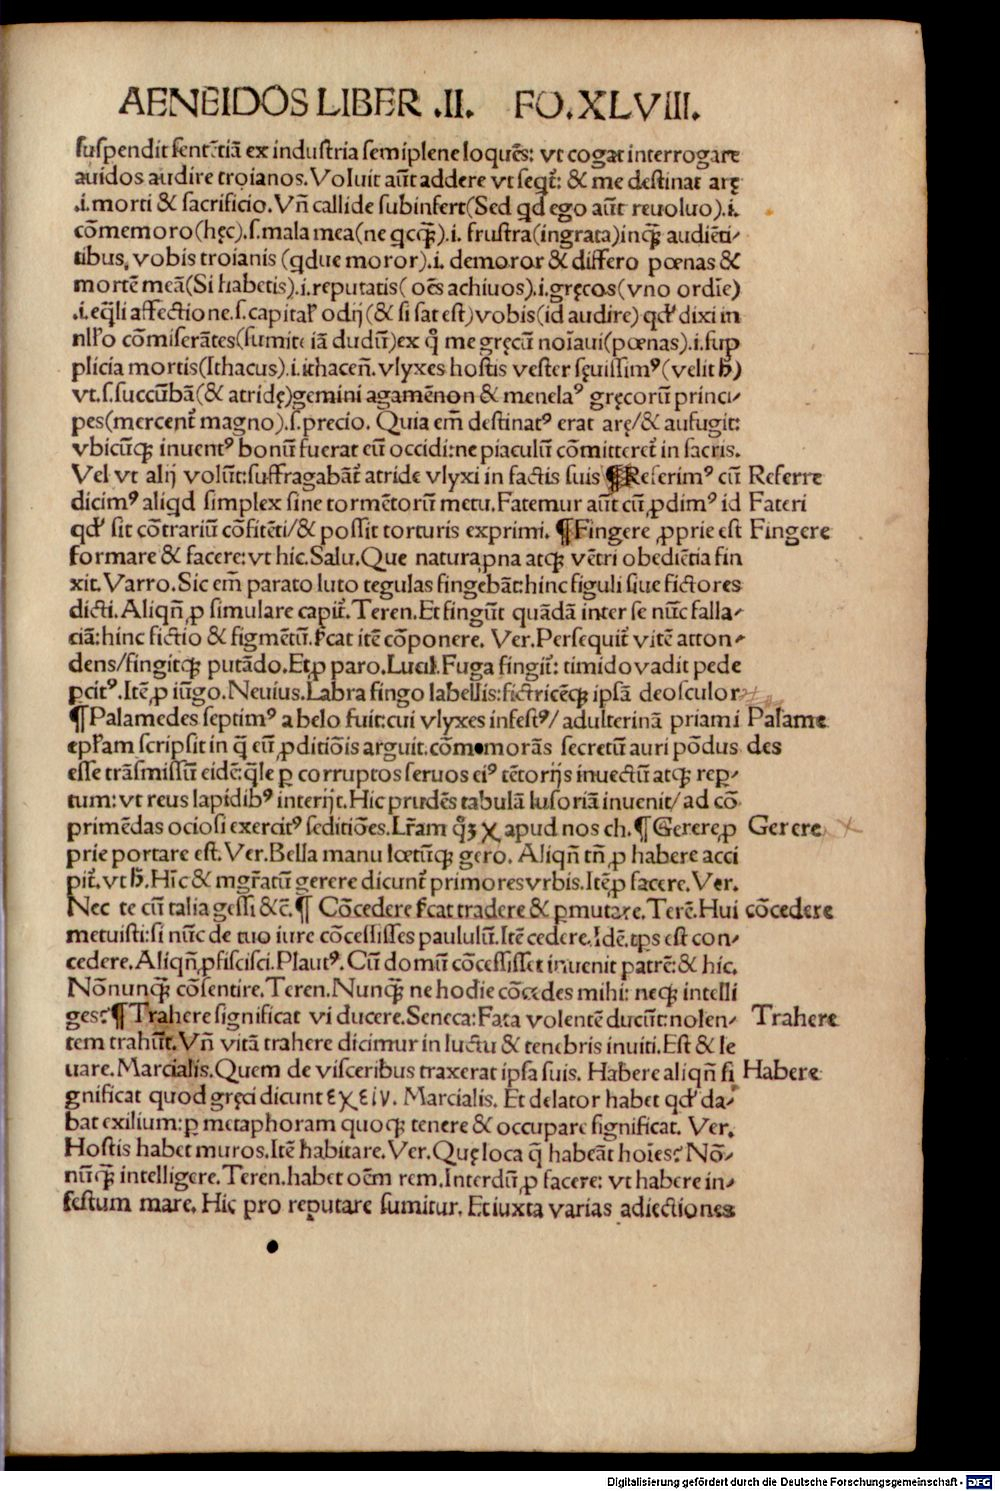 AENEIDOS LIBER .II. FO.XLVIII.
suspendit sentētiā ex industria semiplene loquēs: vt cogat interrogare
auidos audire troianos. Voluit aūt addere vt seqt̄: & me destinat arę
.i. morti & sacrificio. Vn̄ callide subinfert(Sed qd ego aūt reuoluo).i.
cōmemoro(hęc).s. mala mea(ne qcꝗ̄).i. frustra(ingrata)inꝗ̄ audiēti⸗
tibus, vobis troianis (qdue moror).i. demoror & differo pœnas &
mortē meā(Si habetis).i. reputatis( oēs achiuos).i. gręcos(vno ordīe)
.i. eq̄li affectione.s. capital' odij(& si sat est)vobis(id audire) qd' dixi in
nr̄o cōmiserātes(sumite iā dudū)ex q̄ me gręcū noīaui(pœnas).i. sup
plicia mortis(Ithacus).i. ithaceñ. vlyxes hostis vester sęuissimꝰ(velit h̄)
vt.s. succūbā(& atridę)gemini agamēnon & menelaꝰ gręcorū princi⸗
pes(mercent̄ magno).s. precio. Quia em̄ destinatꝰ erat arę/& aufugit:
vbicūqꝫ inuentꝰ bonū fuerat eū occidi: ne piaculū cōmitteret̄ in sacris.
Vel vt alij volūt: suffragabāt̄ atride vlyxi in factis suis ¶Referimꝰ cū Referre
dicimꝰ aliqd simplex sine tormētorū metu. Fatemur aūt cū ꝓdimꝰ id Fateri
qd' sit cōtrariū cōfitēti/& possit torturis exprimi. ¶Fingere ꝓprie est Fingere
formare & facere: vt hic. Salu. Que natura ꝓna atqꝫ vētri obediētia fin
xit. Varro. Sic em̄ parato luto tegulas fingebāt: hinc figuli siue fictores
dicti. Aliqn̄ ꝓ simulare capit̄. Teren. Et fingūt quādā inter se nūc falla⸗
ciā: hinc fictio & figmētū. s̄cat itē cōponere. Ver. Persequit̄ vitē atton⸗
dens/fingitqꝫ putādo. Et ꝓ paro. Lucil. Fuga fingit̄: timido vadit pede
ꝑcitꝰ. Itē ꝓ iūgo. Neuius. Labra fingo labellis: fictricēqꝫ ipsā deosculor
¶Palamedes septimꝰ a belo fuit: cui vlyxes infestꝰ/ adulterinā priami Palame
epl'am scripsit in q̄ eū ꝓditiōis arguit. cōmemorās secretū auri pōdus des
esse trāsmissū eidē: q̄le ꝑ corruptos seruos eiꝰ tētorijs inuectū atqꝫ rep⸗
tum: vt reus lapidibꝰ interijt. Hic prudēs tabulā lusoriā inuenit/ ad cō
primēdas ociosi exercitꝰ seditiōes. Lr̄am q̄qꝫ χ apud nos ch. ¶Gerere ꝓ Gerere
prie portare est. Ver. Bella manu lœtūqꝫ gero. Aliqn̄ tn̄ ꝓ habere acci
pit̄. vt h̄. Hīc & mgr̄atū gerere dicunt̄ primores vrbis. Itē ꝓ facere. Ver.
Nec te cū talia gessi &c̄. ¶ Cōcedere s̄cat tradere & ꝑmutare. Terē. Hui cōcedere
metuisti: si nūc de tuo iure cōcessisses paululū. Itē cedere. Idē. tp̄s est con⸗
cedere. Aliqn̄ ꝓfiscisci. Plautꝰ. Cū domū cōcessisset inuenit patrē: & hic.
Nōnunꝗ̄ cōsentire. Teren. Nunꝗ̄ ne hodie cōcedes mihi: neqꝫ intelli
ges? ¶Trahere significat vi ducere. Seneca: Fata volentē ducūt: nolen⸗ Trahere
tem trahūt. Vn̄ vitā trahere dicimur in luctu & tenebris inuiti. Est & le
uare. Marcialis. Quem de visceribus traxerat ipsa suis. Habere aliqn̄ si Habere
gnificat quod gręci dicunt εχειν. Marcialis. Et delator habet qd' da⸗
bat exilium: ꝑ metaphoram quoqꝫ tenere & occupare significat. Ver.
Hostis habet muros. Itē habitare. Ver. Quę loca q̄ habeāt hoīes? Nō⸗
nūꝗ̄ intelligere. Teren. habet oēm rem. Interdū ꝓ facere: vt habere in⸗
festum mare. Hic pro reputare sumitur. Et iuxta varias adiectiones
Digitalisierung gefördert durch die Deutsche Forschungsgemeinschaft - DFG